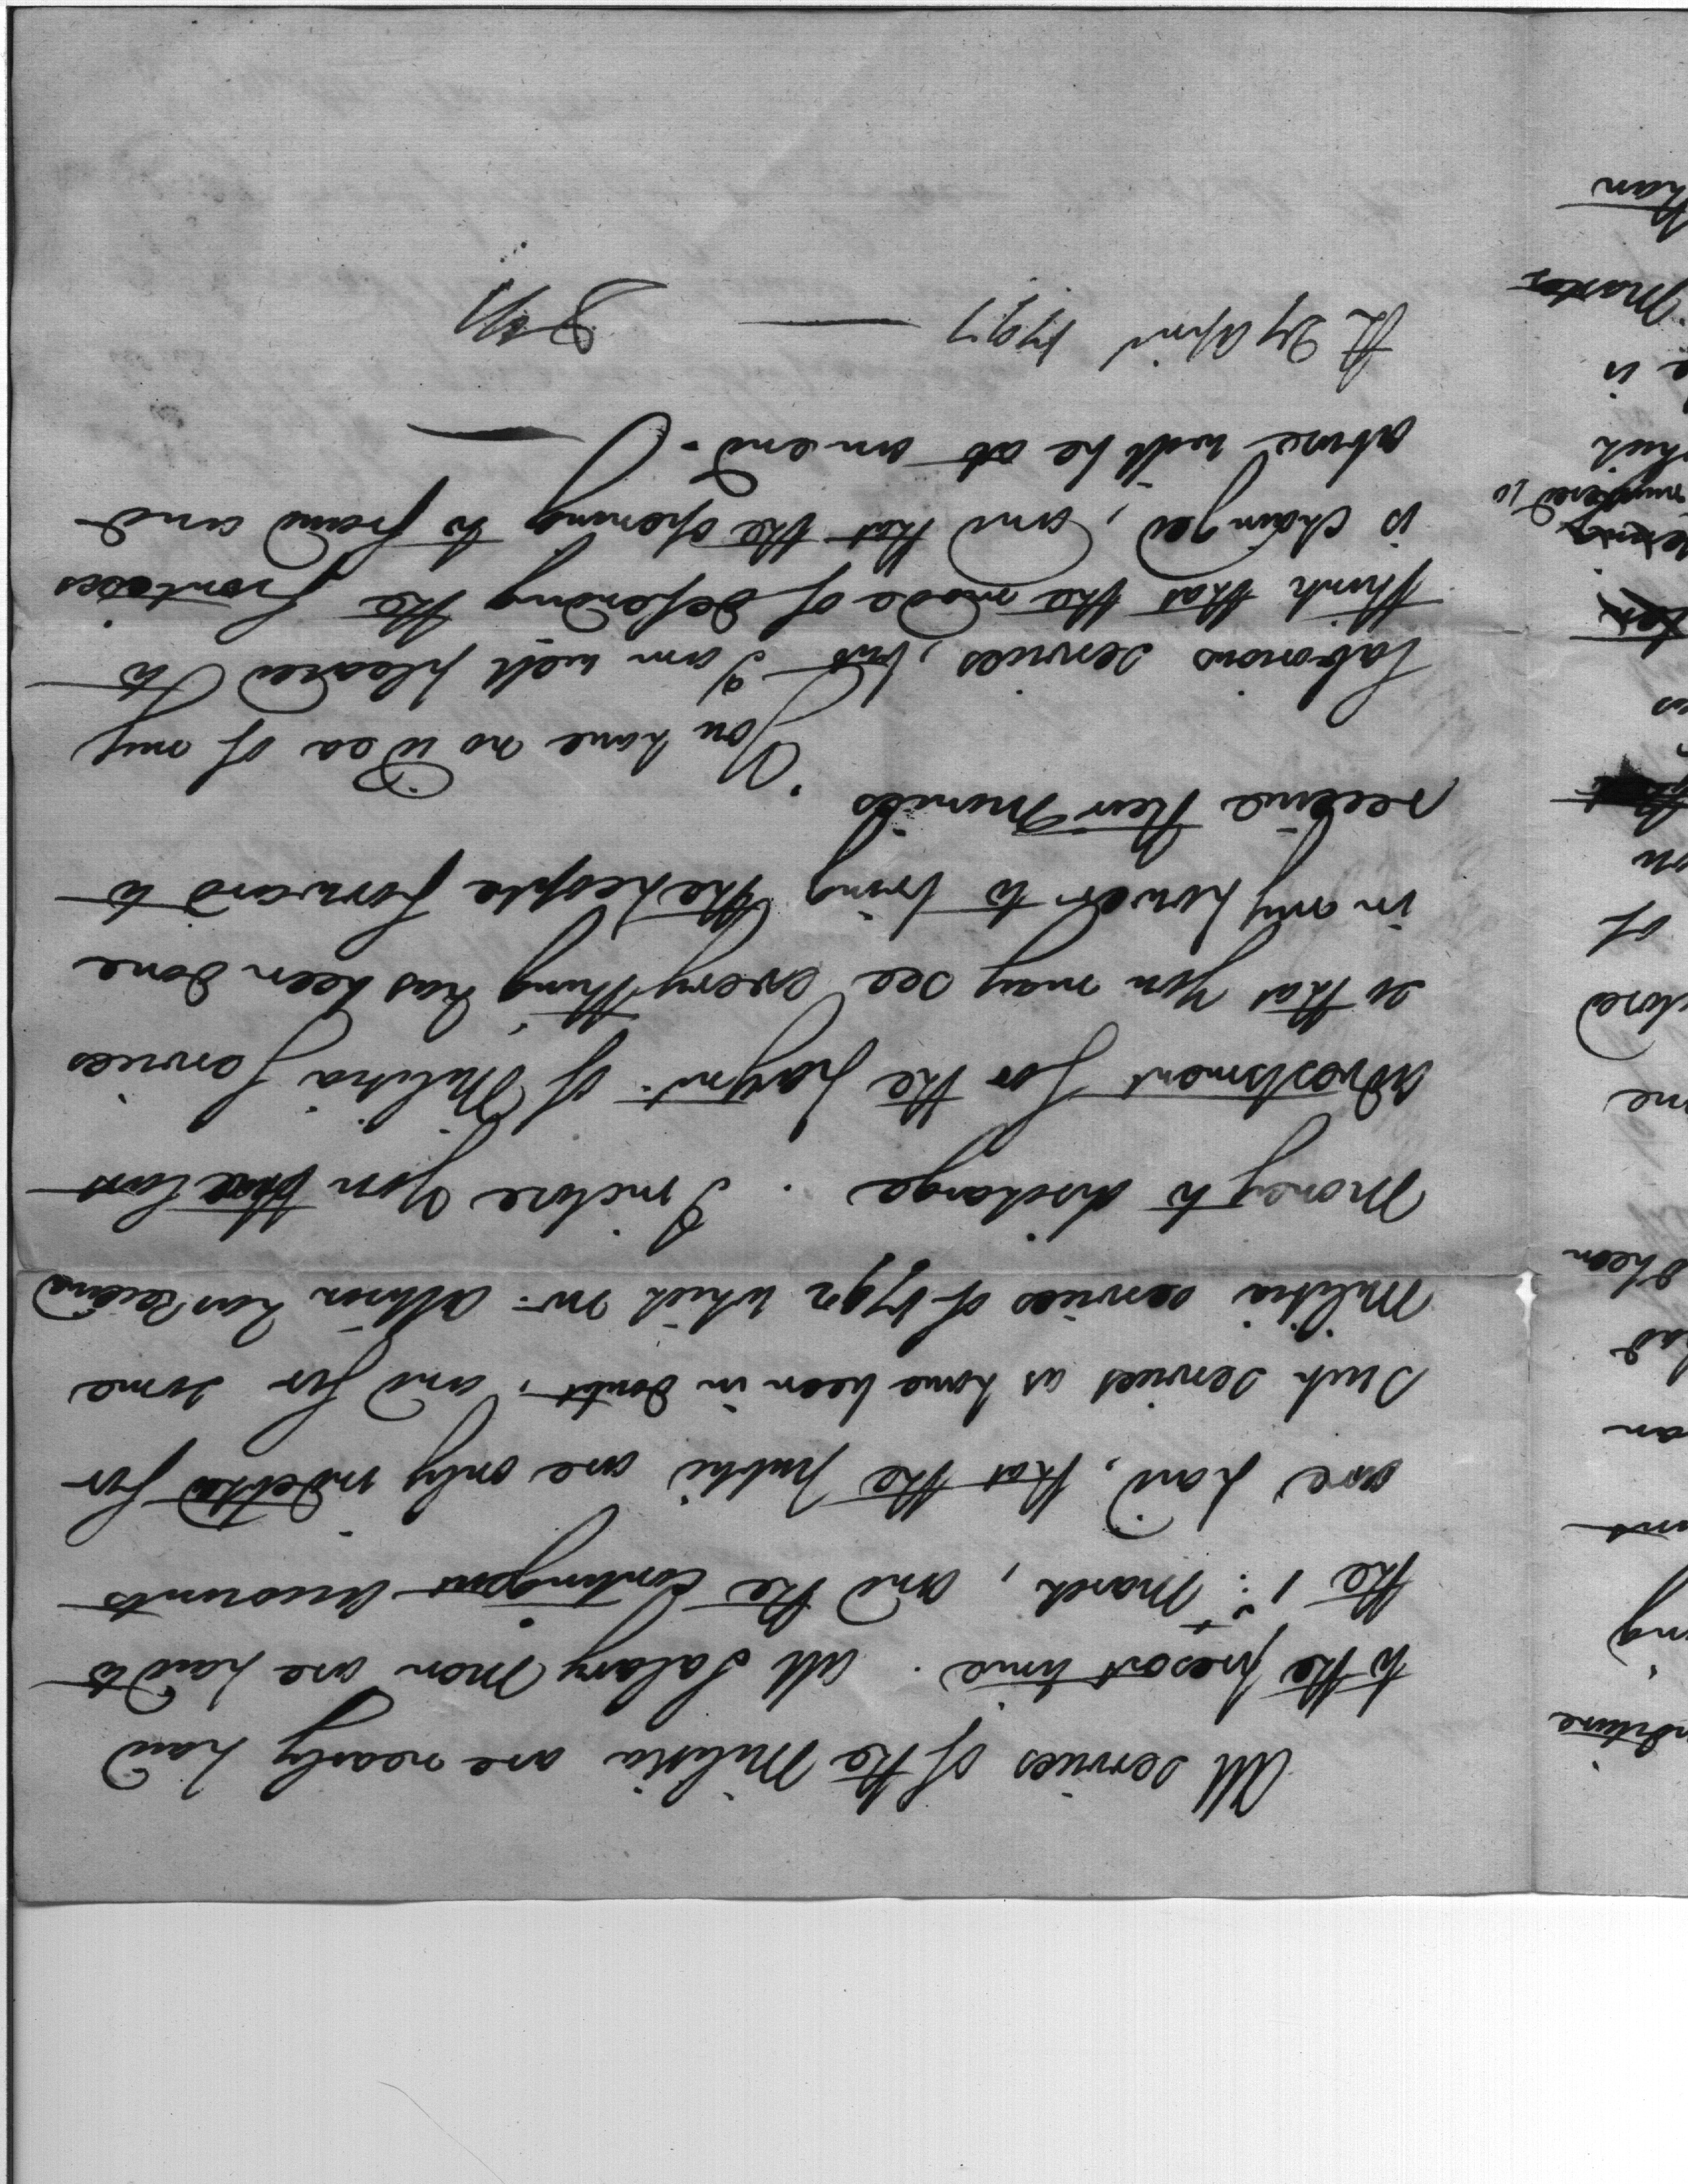 All services of the Militia are nearly paid
to the present time. All Salary Men are paid to
the 1st: March, and the Contingent Accounts
are paid, that the public are only indebted for
such services as have been in doubt, and for some
Militia services of 1792 which Mr. has received
Money to discharge. I inclose you the last
advertisment for the paymt. of Militia Services
so that you may see every thing has been done
in my power to bring the people forward to
receive their Monies
You have no idea of my
laborious services, but I am well pleased to
think that the mode of defending the frontiers
is changed, and that the opening to fraud and
abuse will be at an end.
27 April 1797
ing
an
had
been
me
of
is